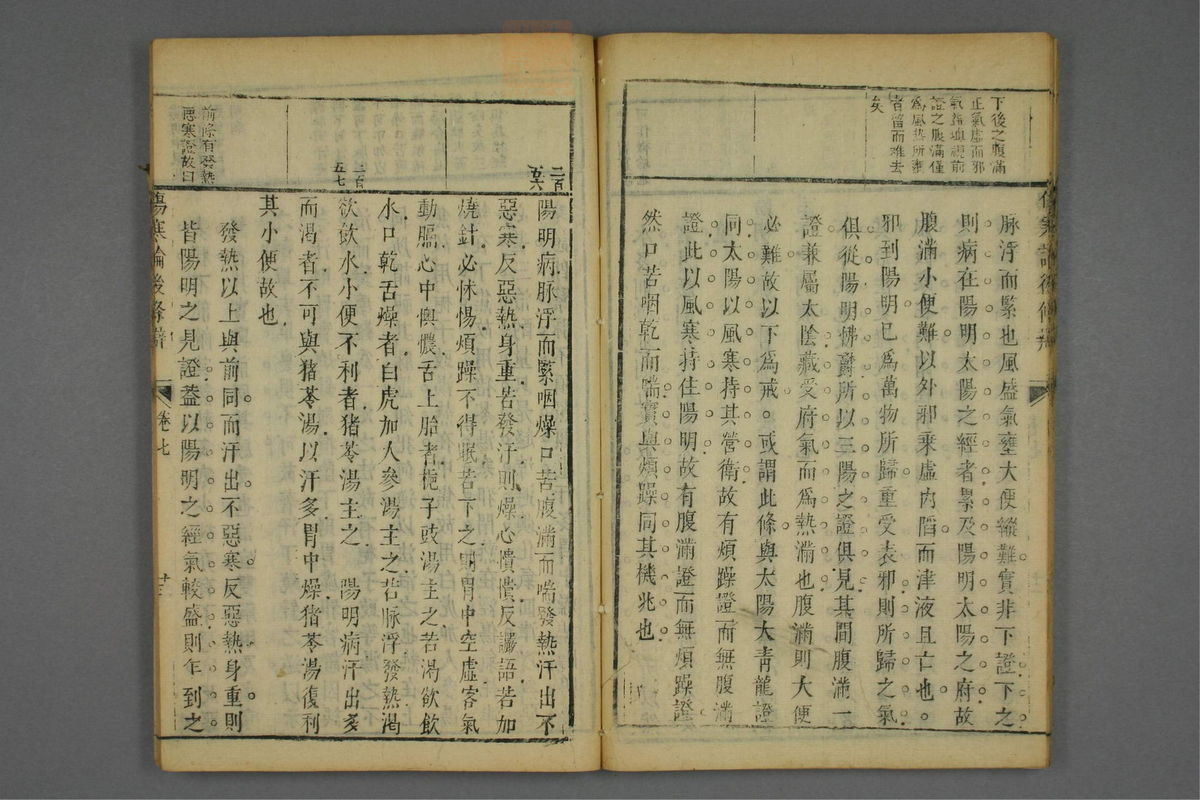 下後之腹滿
正氣虛而邪
氣益壅視前
證之腹滿僅
爲風熱所壅
者留而難去
矣
脉浮而緊也風盛氣壅大便縱難實非下證下之
則病在陽明太陽之經者累及陽明太陽之府故
腹滿小便難以外邪乘虛內陷而津液且亡也
邪到陽明已爲萬物所歸重受表邪則所歸之氣
俱從陽明怫鬱所以三陽之證俱見其間腹滿一
證兼屬太陰藏受府氣而爲熱滿也腹滿則大便
必難故以下爲戒。或謂此條與太陽大青龍證
同太陽以風寒持其營衛故有煩躁證而無腹滿
證此以風寒持住陽明故有腹滿證而無煩躁證
然口苦咽乾而喘實與煩躁同其機兆也
二百五六
陽明病脉浮而緊咽燥口苦腹滿而喘發熱汗出不
惡寒反惡熱身重若發汗則燥心憒憒反讝語若加
燒針必怵惕煩躁不得眠若下之則胃中空虛客氣
動膈心中懊憹舌上胎者梔子豉湯主之若渴欲飲
水口乾舌燥者白虎加人參湯主之若脉浮發熱渴
二百五七
欲飲水小便不利者猪苓湯主之　陽明病汗出多
而渴者不可與猪苓湯以汗多胃中燥猪苓湯復利
其小便故也
前條有發熱
惡寒證故曰
發熱以上與前同而汗出不惡寒反惡熱身重則
皆陽明之見證葢以陽明之經氣較盛則乍到之
傷寒論後條辨
卷七
十三